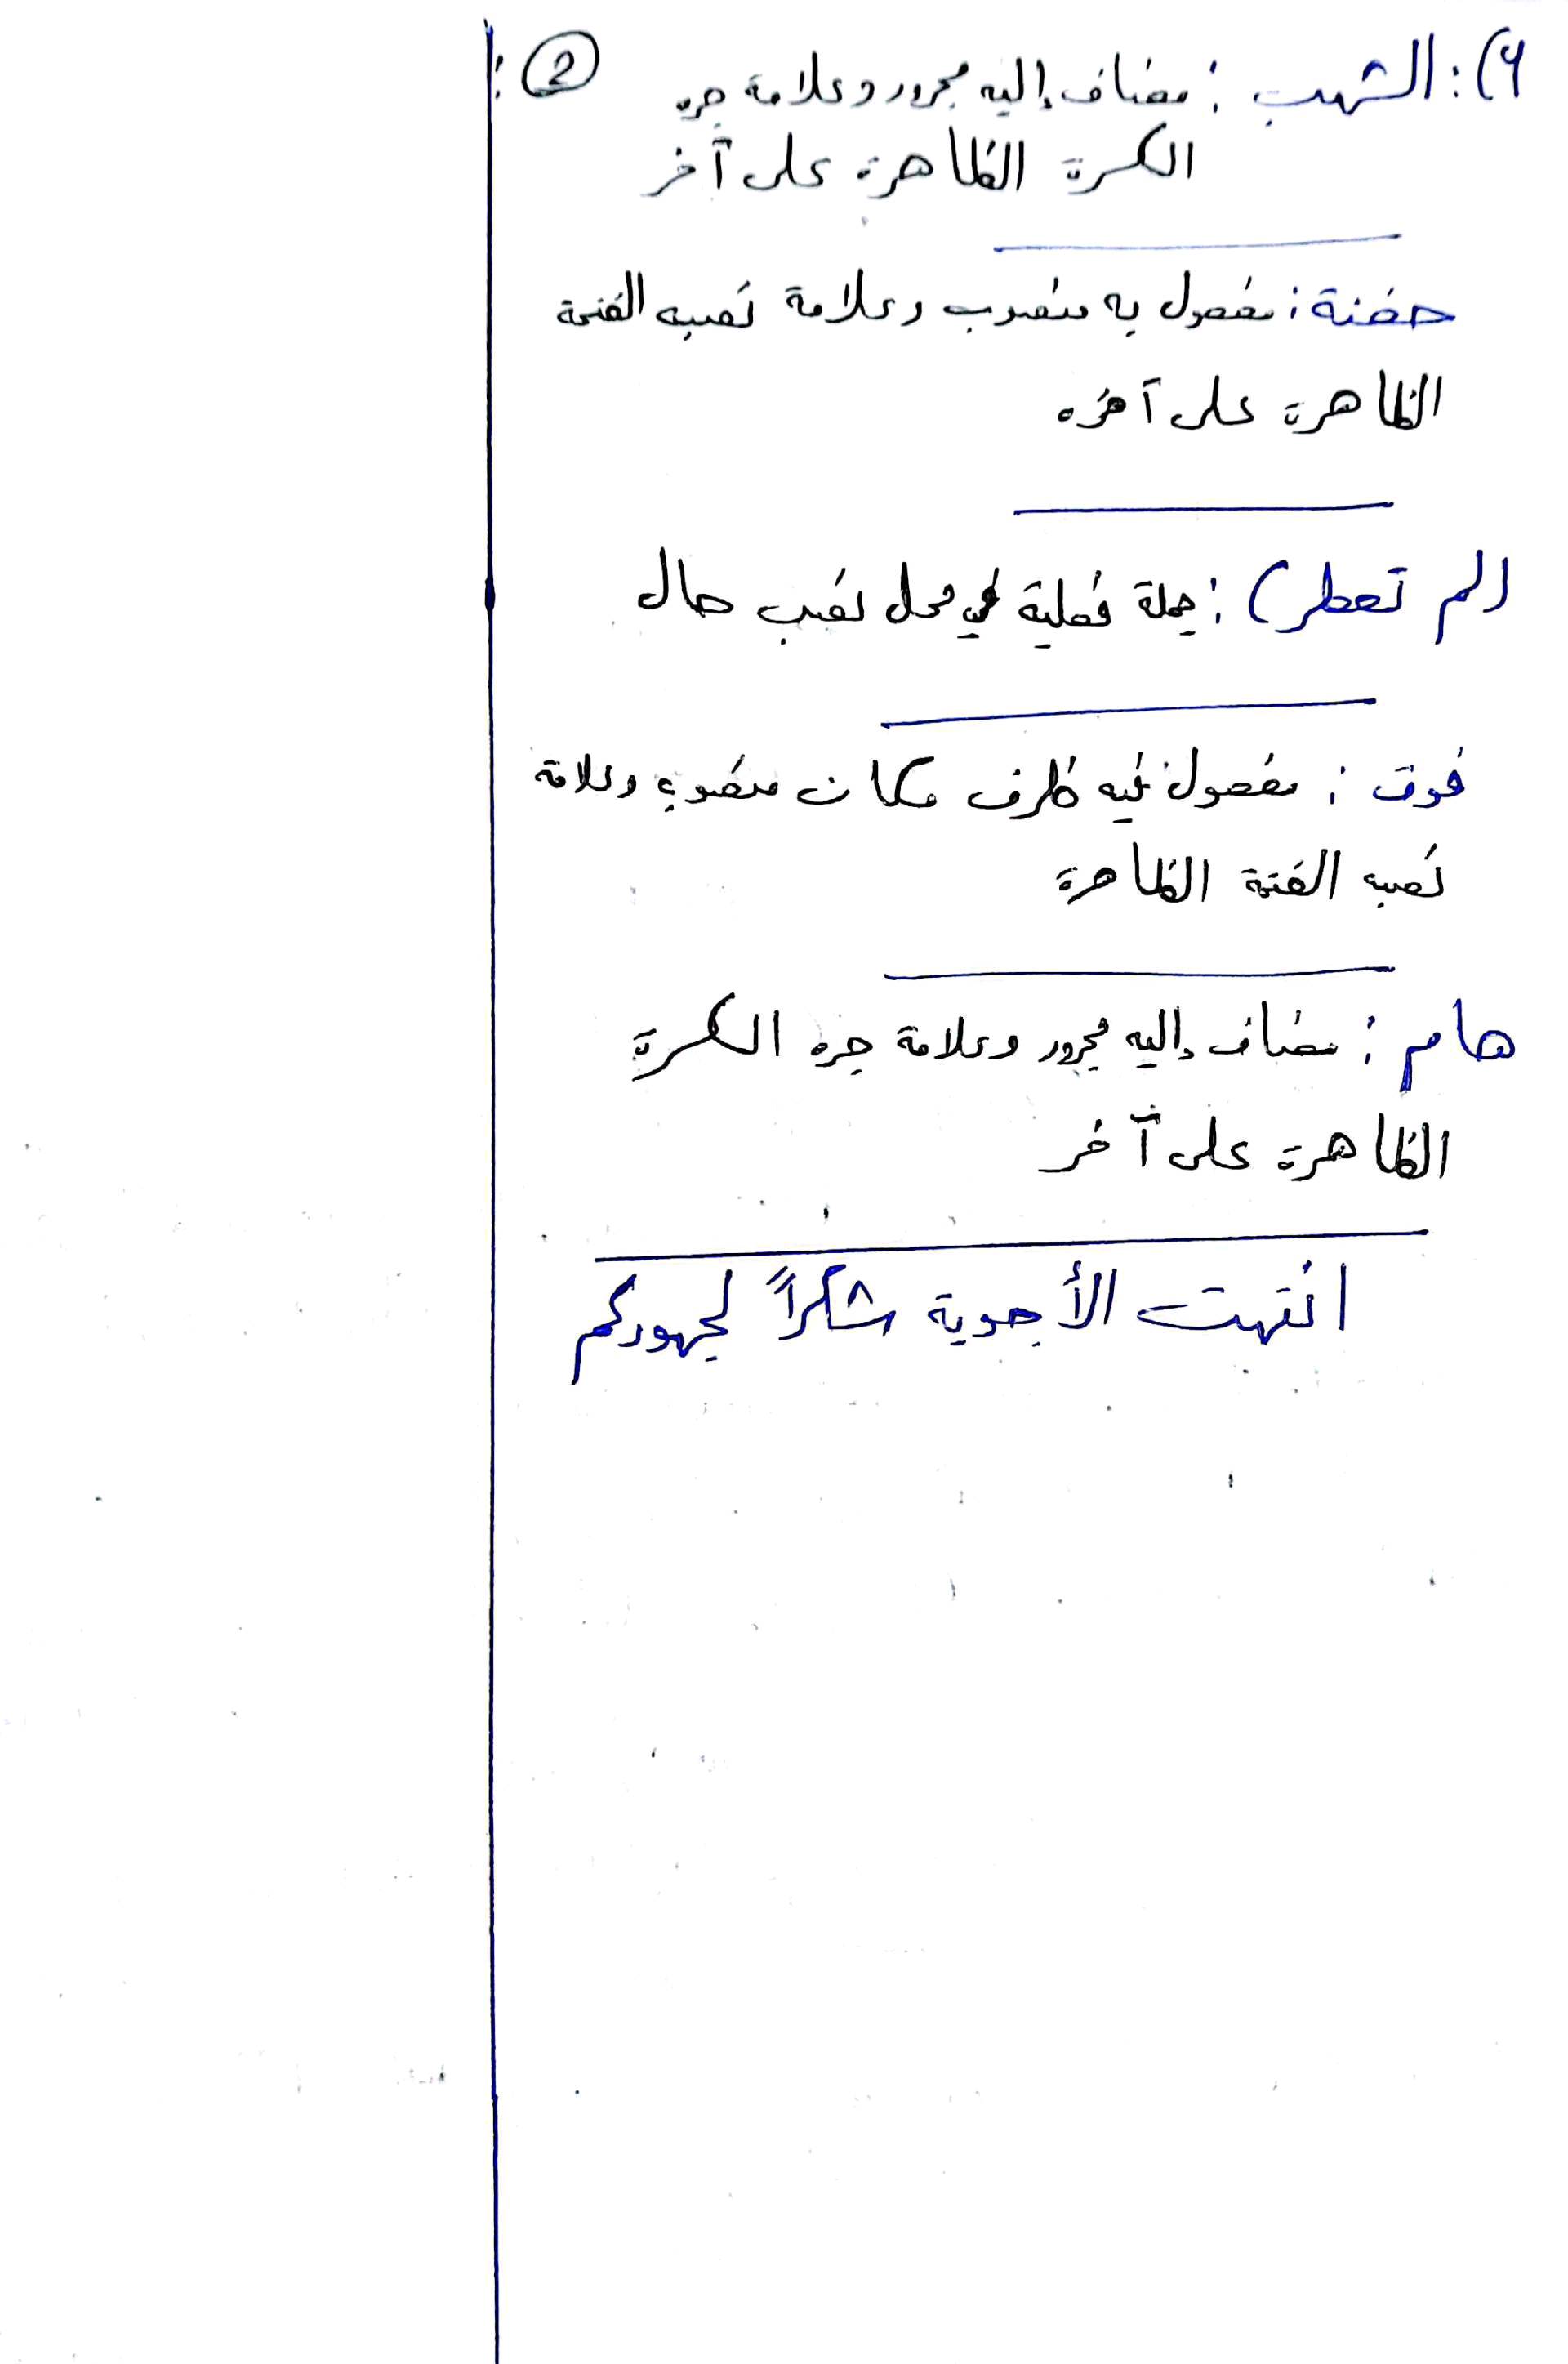 ٦): الشهب : مضاف إليه مجرور وعلامة جره ②:
الكسرة الظاهرة على آخر
حفنة : مفعول به منصوب وعلامة نصبه الفتحة
الظاهرة على آخره
(لم تعطر) : جملة فعلية في محل نصب حال
فوق : مفعول فيه ظرف مكان منصوب وعلامة
نصبه الفتحة الظاهرة
هام : مضاف إليه مجرور وعلامة جره الكسرة
الظاهرة على آخر
انتهت الأجوبة شكراً لجهودكم